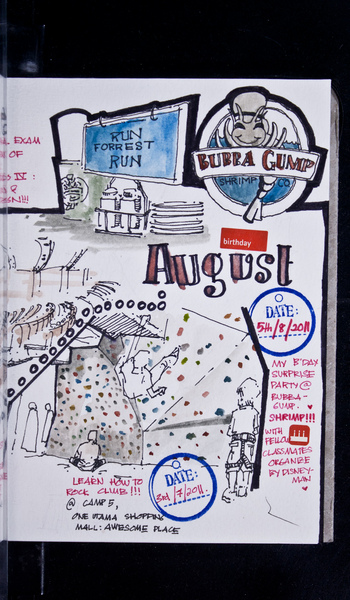 RUN
FORREST
RUN
BUBBA GUMP
SHRIMP CO.
EXAM
OF
IV :
&
birthday
August
DATE:
5th/8/2011
MY B'DAY
SURPRISE
PARTY @
BUBBA-
GUMP. ♥
SHRIMP!!!
WITH
FELLOW
CLASSMATES
ORGANZE
BY DISNEY-
MAN
♥
LEARN HOW TO
ROCK CLIMB !!!
@ CAMP 5,
ONE UTAMA SHOPPING
MALL: AWESOME PLACE
DATE:
3rd/7/2011